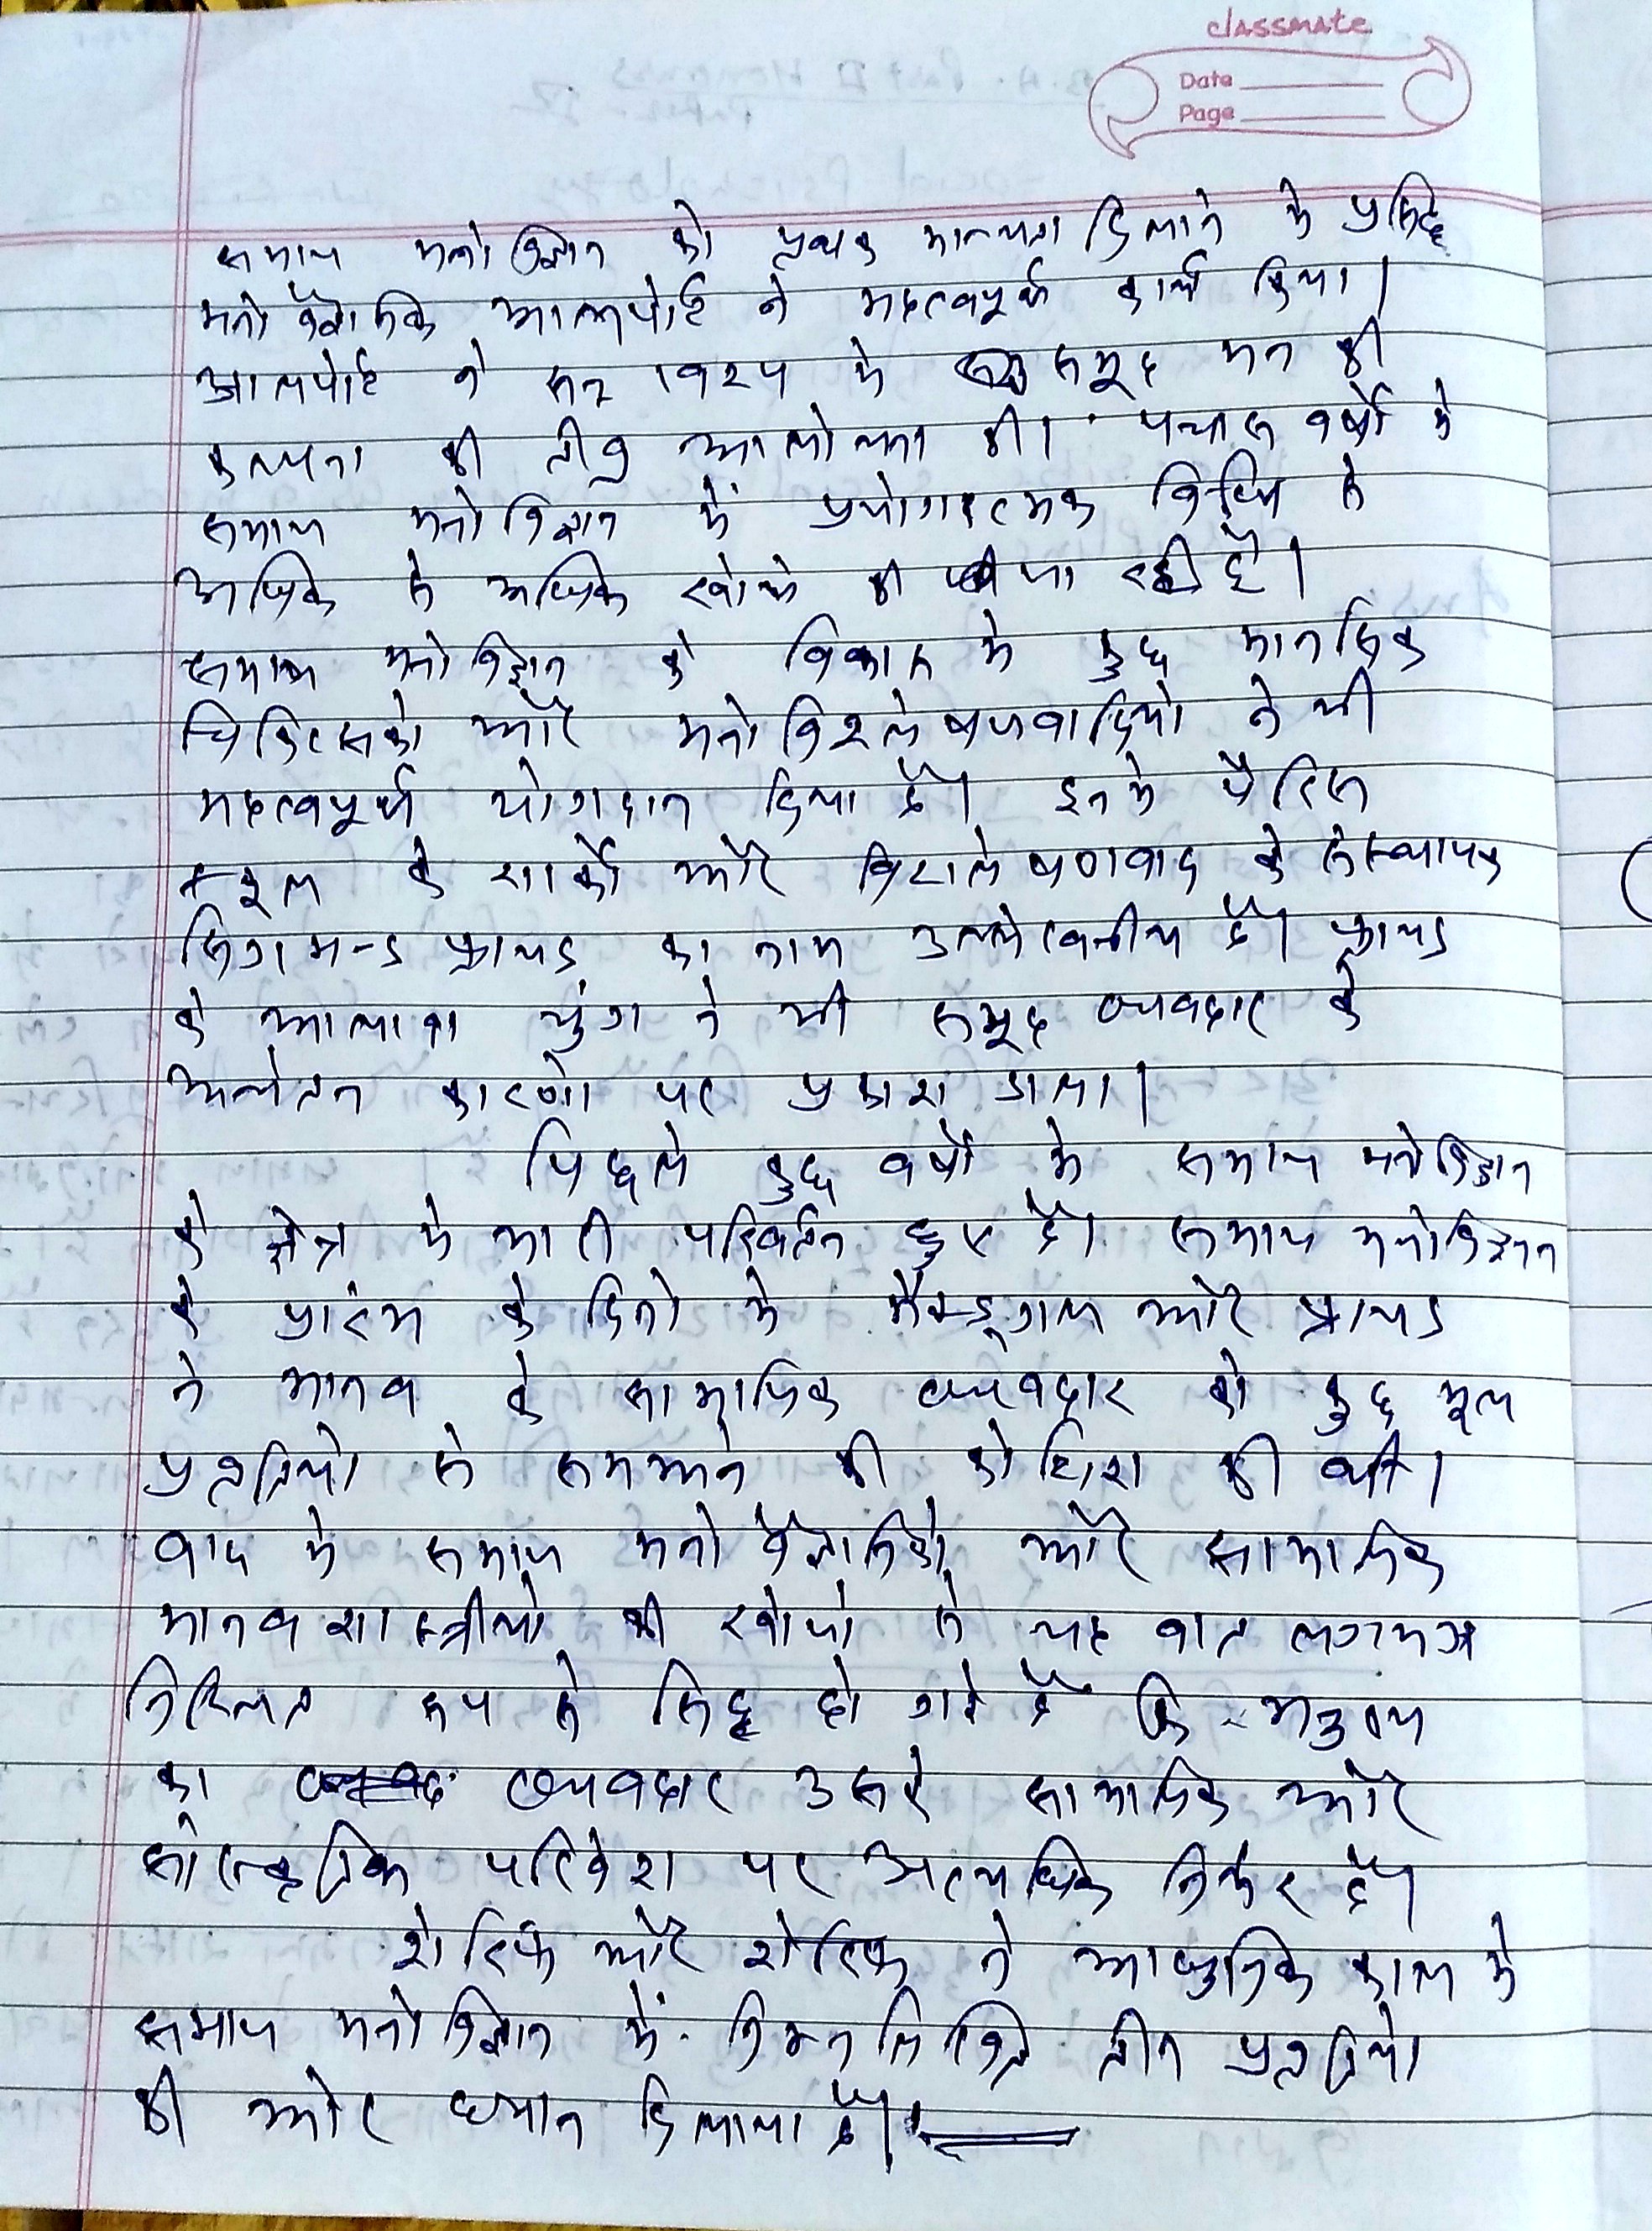 classmate
Date
Page
समाज मनोविज्ञान को पृथक मान्यता दिलाने मे प्रसिद्ध
मनोवैज्ञानिक आलपोर्ट ने महत्वपूर्ण कार्य किया।
आलपोर्ट ने सन् 1924 मे समूह मन की
कल्पना की तीव्र आलोचना की। पचास वर्षो मे
समाज मनोविज्ञान में प्रयोगात्मक विधि से
अधिक से अधिक खोजे की जा रही है।
समाज मनोविज्ञान के विकास मे कुछ मानसिक
चिकित्सको और मनोविश्लेषणवादियो ने भी
महत्वपूर्ण योगदान दिया है। इनमे पेरिस
स्कूल के शार्को और विश्लेषणवाद के संस्थापक
सिगमन्ड फ्रायड का नाम उल्लेखनीय है। फ्रायड
के आलावा युंग ने भी समूह व्यवहार के
अचेतन कारणो पर प्रकाश डाला।
पिछले कुछ वर्षो मे समाज मनोविज्ञान
के क्षेत्र मे भारी परिवर्तन हुए है। समाज मनोविज्ञान
के प्रारंभ के दिनो मे मैक्डूगल और फ्रायड
ने मानव के सामाजिक व्यवहार को कुछ मूल
प्रवृतियो से समझाने की कोशिश की थी।
बाद मे समाज मनोवैज्ञानिको और सामाजिक
मानवशास्त्रीयो की खोजो से यह बात लगभग
निश्चित रूप से सिद्ध हो गई है कि मनुष्य
का व्यवहार उसके सामाजिक और
सांस्कृतिक परिवेश पर अत्यधिक निर्भर है।
शेरिफ और शेरिफ ने आधुनिक काल मे
समाज मनोविज्ञान में निम्नलिखित तीन प्रवृतियो
की ओर ध्यान दिलाया है।